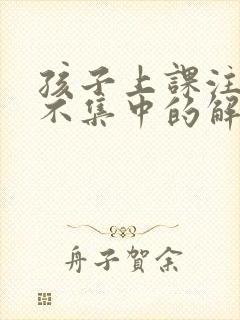 孩子上課注
不集中的解
舟子賀余